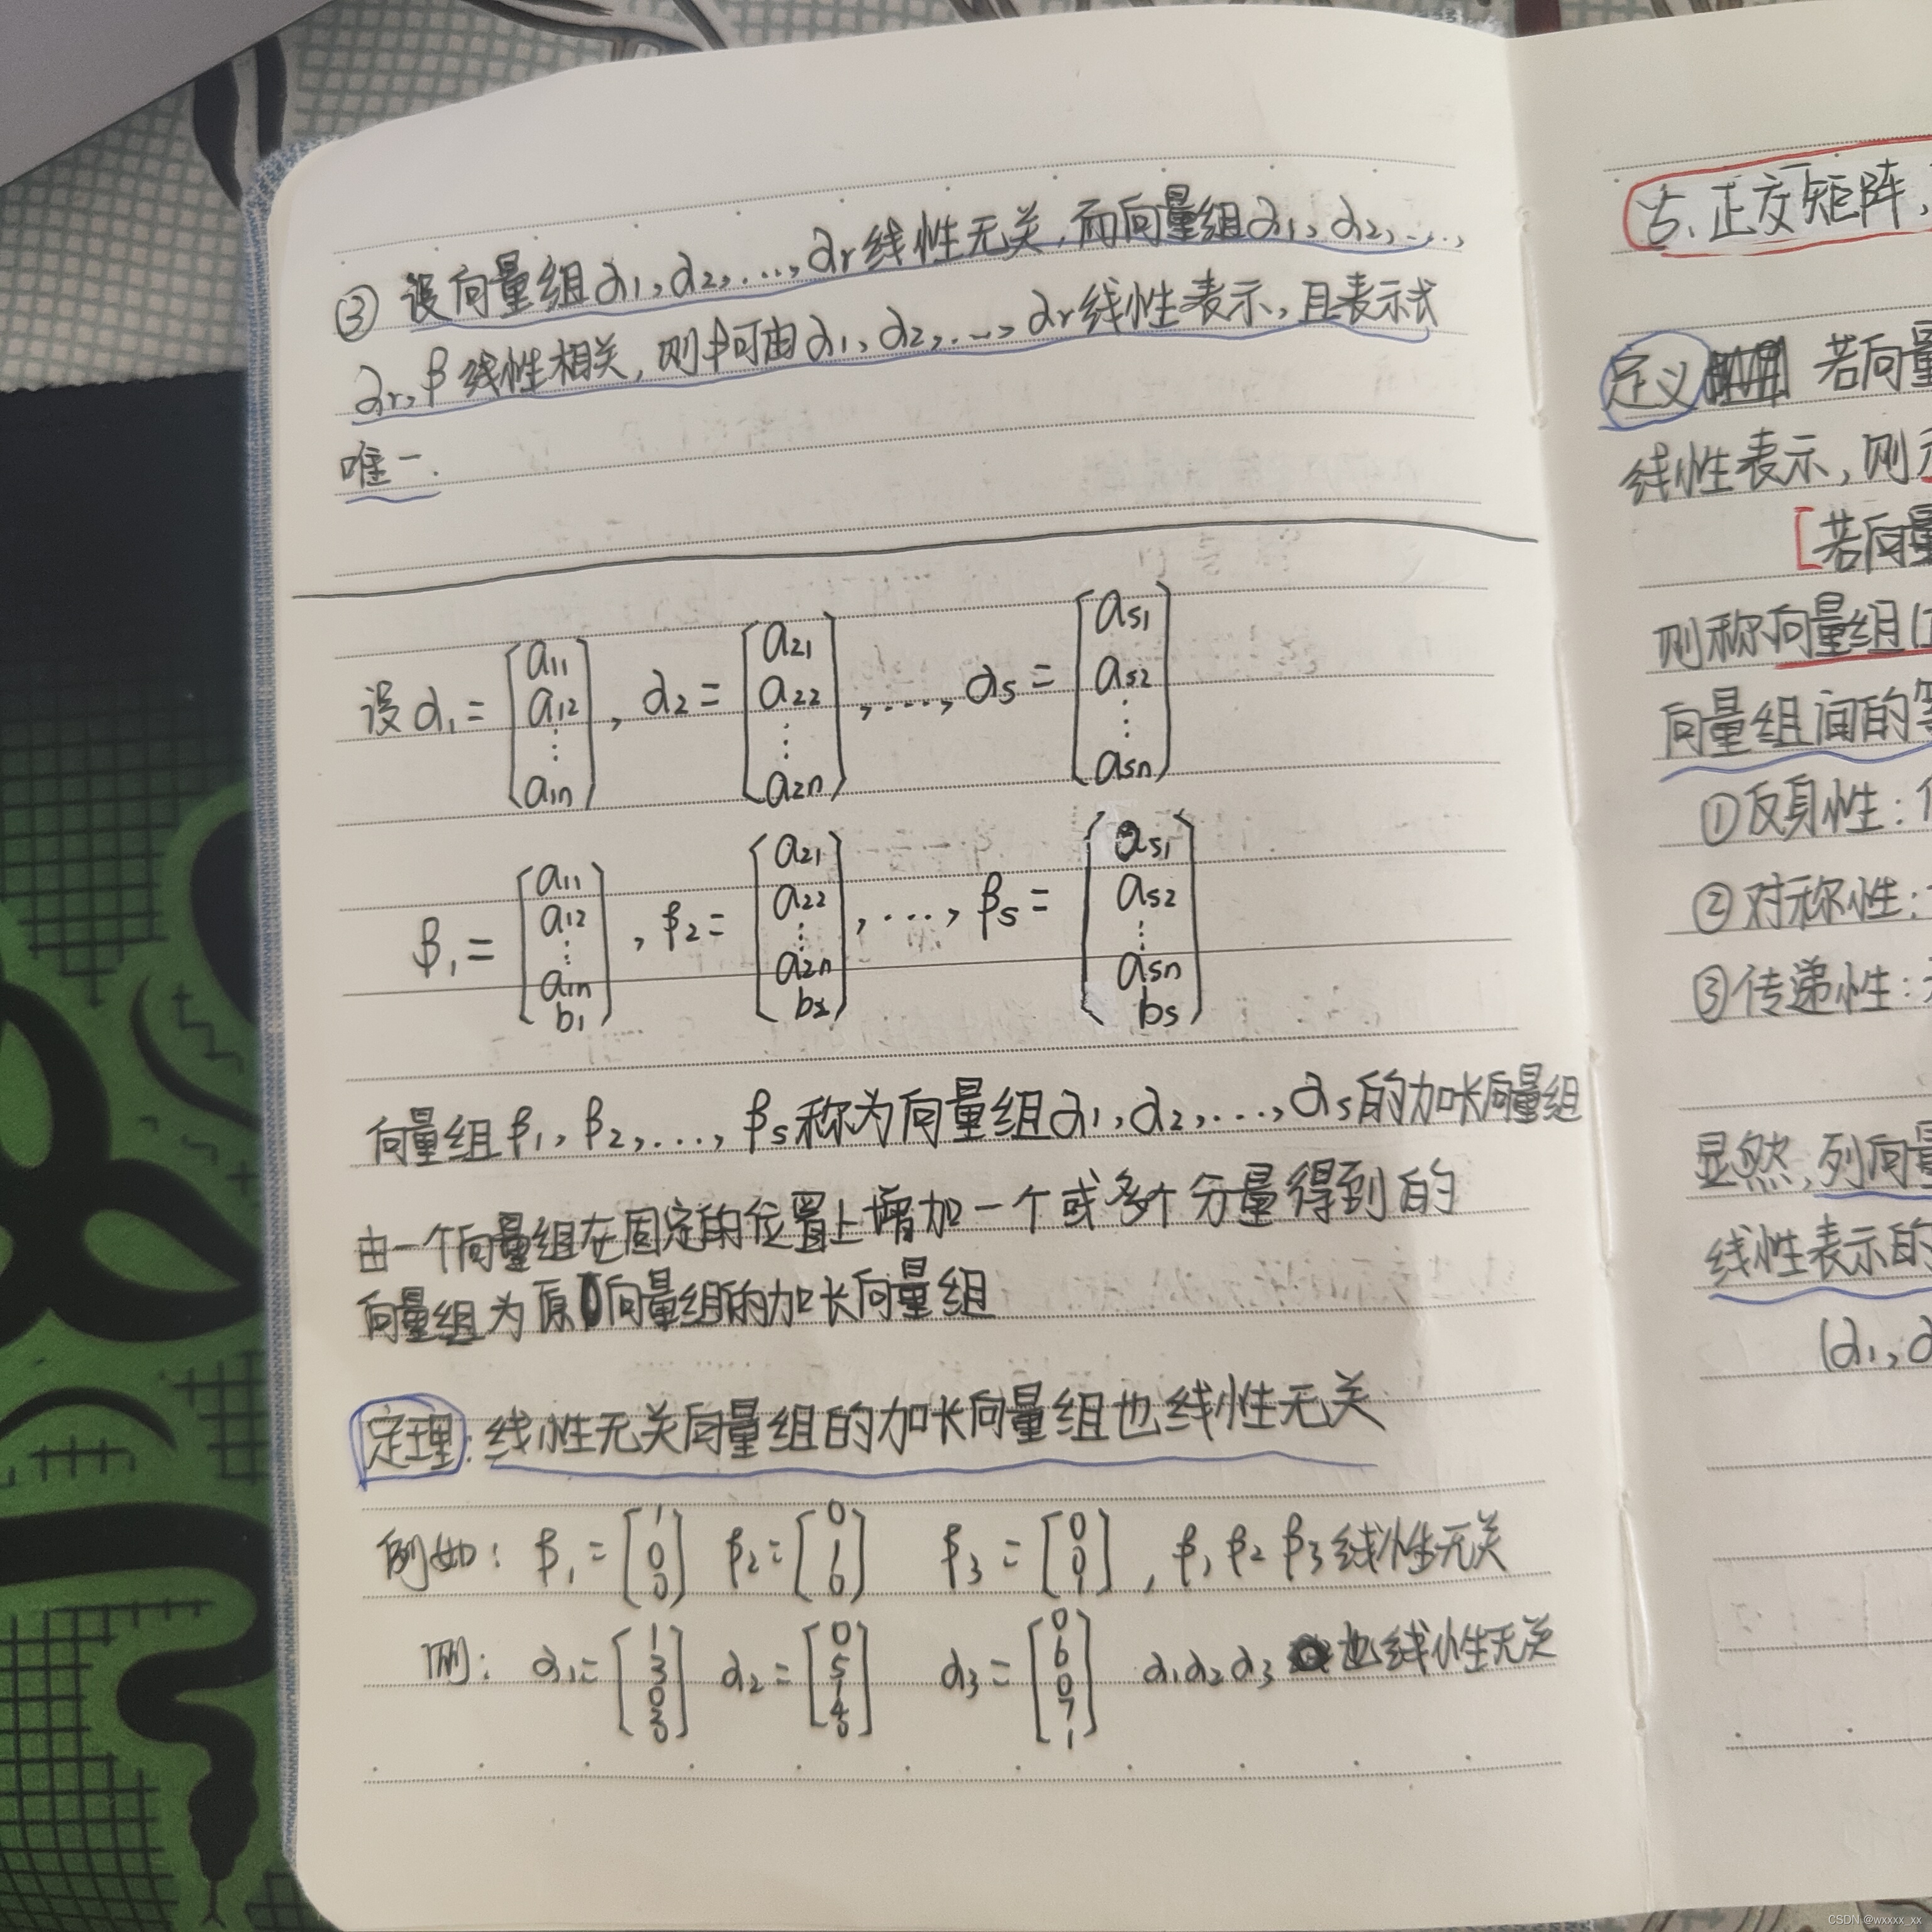 ③ 设向量组α1,α2,...,αr线性无关,而向量组α1,α2,...,
αr,β线性相关,则β可由α1,α2,...,αr线性表示,且表示式
唯一.
设α1=[a11 a12 ⋮ a1n],α2=[a21 a22 ⋮ a2n],....,αs=[as1 as2 ⋮ asn]
β1=[a11 a12 ⋮ a1n b1],β2=[a21 a22 ⋮ a2n b2],....,βs=[as1 as2 ⋮ asn bs]
向量组β1,β2,...,βs称为向量组α1,α2,...,αs的加长向量组
由一个向量组在固定的位置上增加一个或多个分量得到的
向量组为原向量组的加长向量组
定理:线性无关向量组的加长向量组也线性无关
例如:β1=[1 0 0] β2=[0 1 0] β3=[0 0 1],β1β2β3线性无关
例:α1=[1 3 0 2 0] α2=[0 5 1 4 0] α3=[0 6 0 7 1] α1α2α3也线性无关
5、正交矩阵、
定义 若向量
线性表示,则
[若向量
则称向量组(
向量组间的等
①反身性:
②对称性:
③传递性:
显然,列向量
线性表示的
(α1,α
CSDN @wxxxx_xx